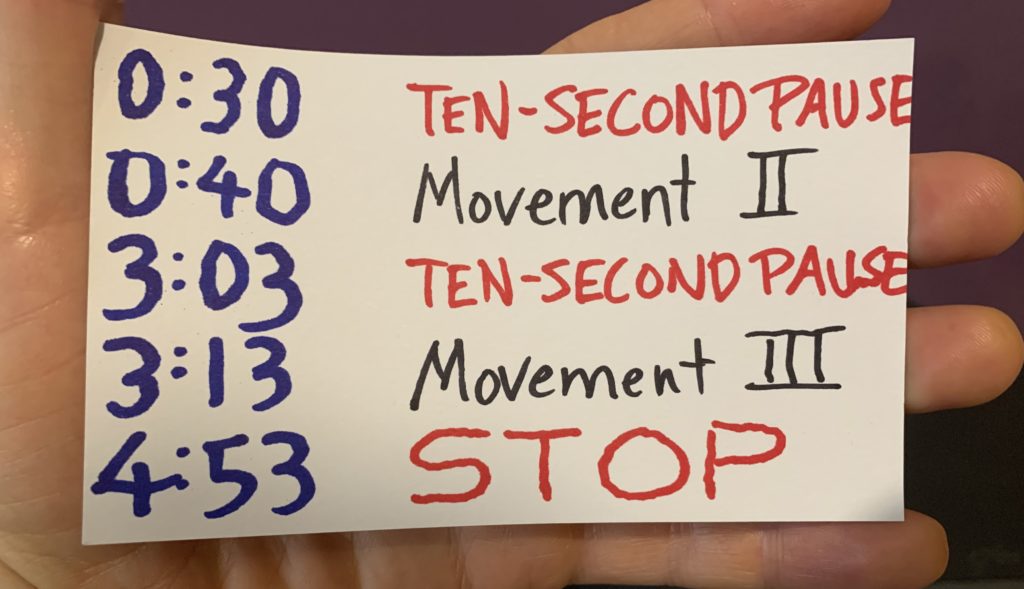 0:30 TEN-SECOND PAUSE
0:40 Movement II
3:03 TEN-SECOND PAUSE
3:13 Movement III
4:53 STOP